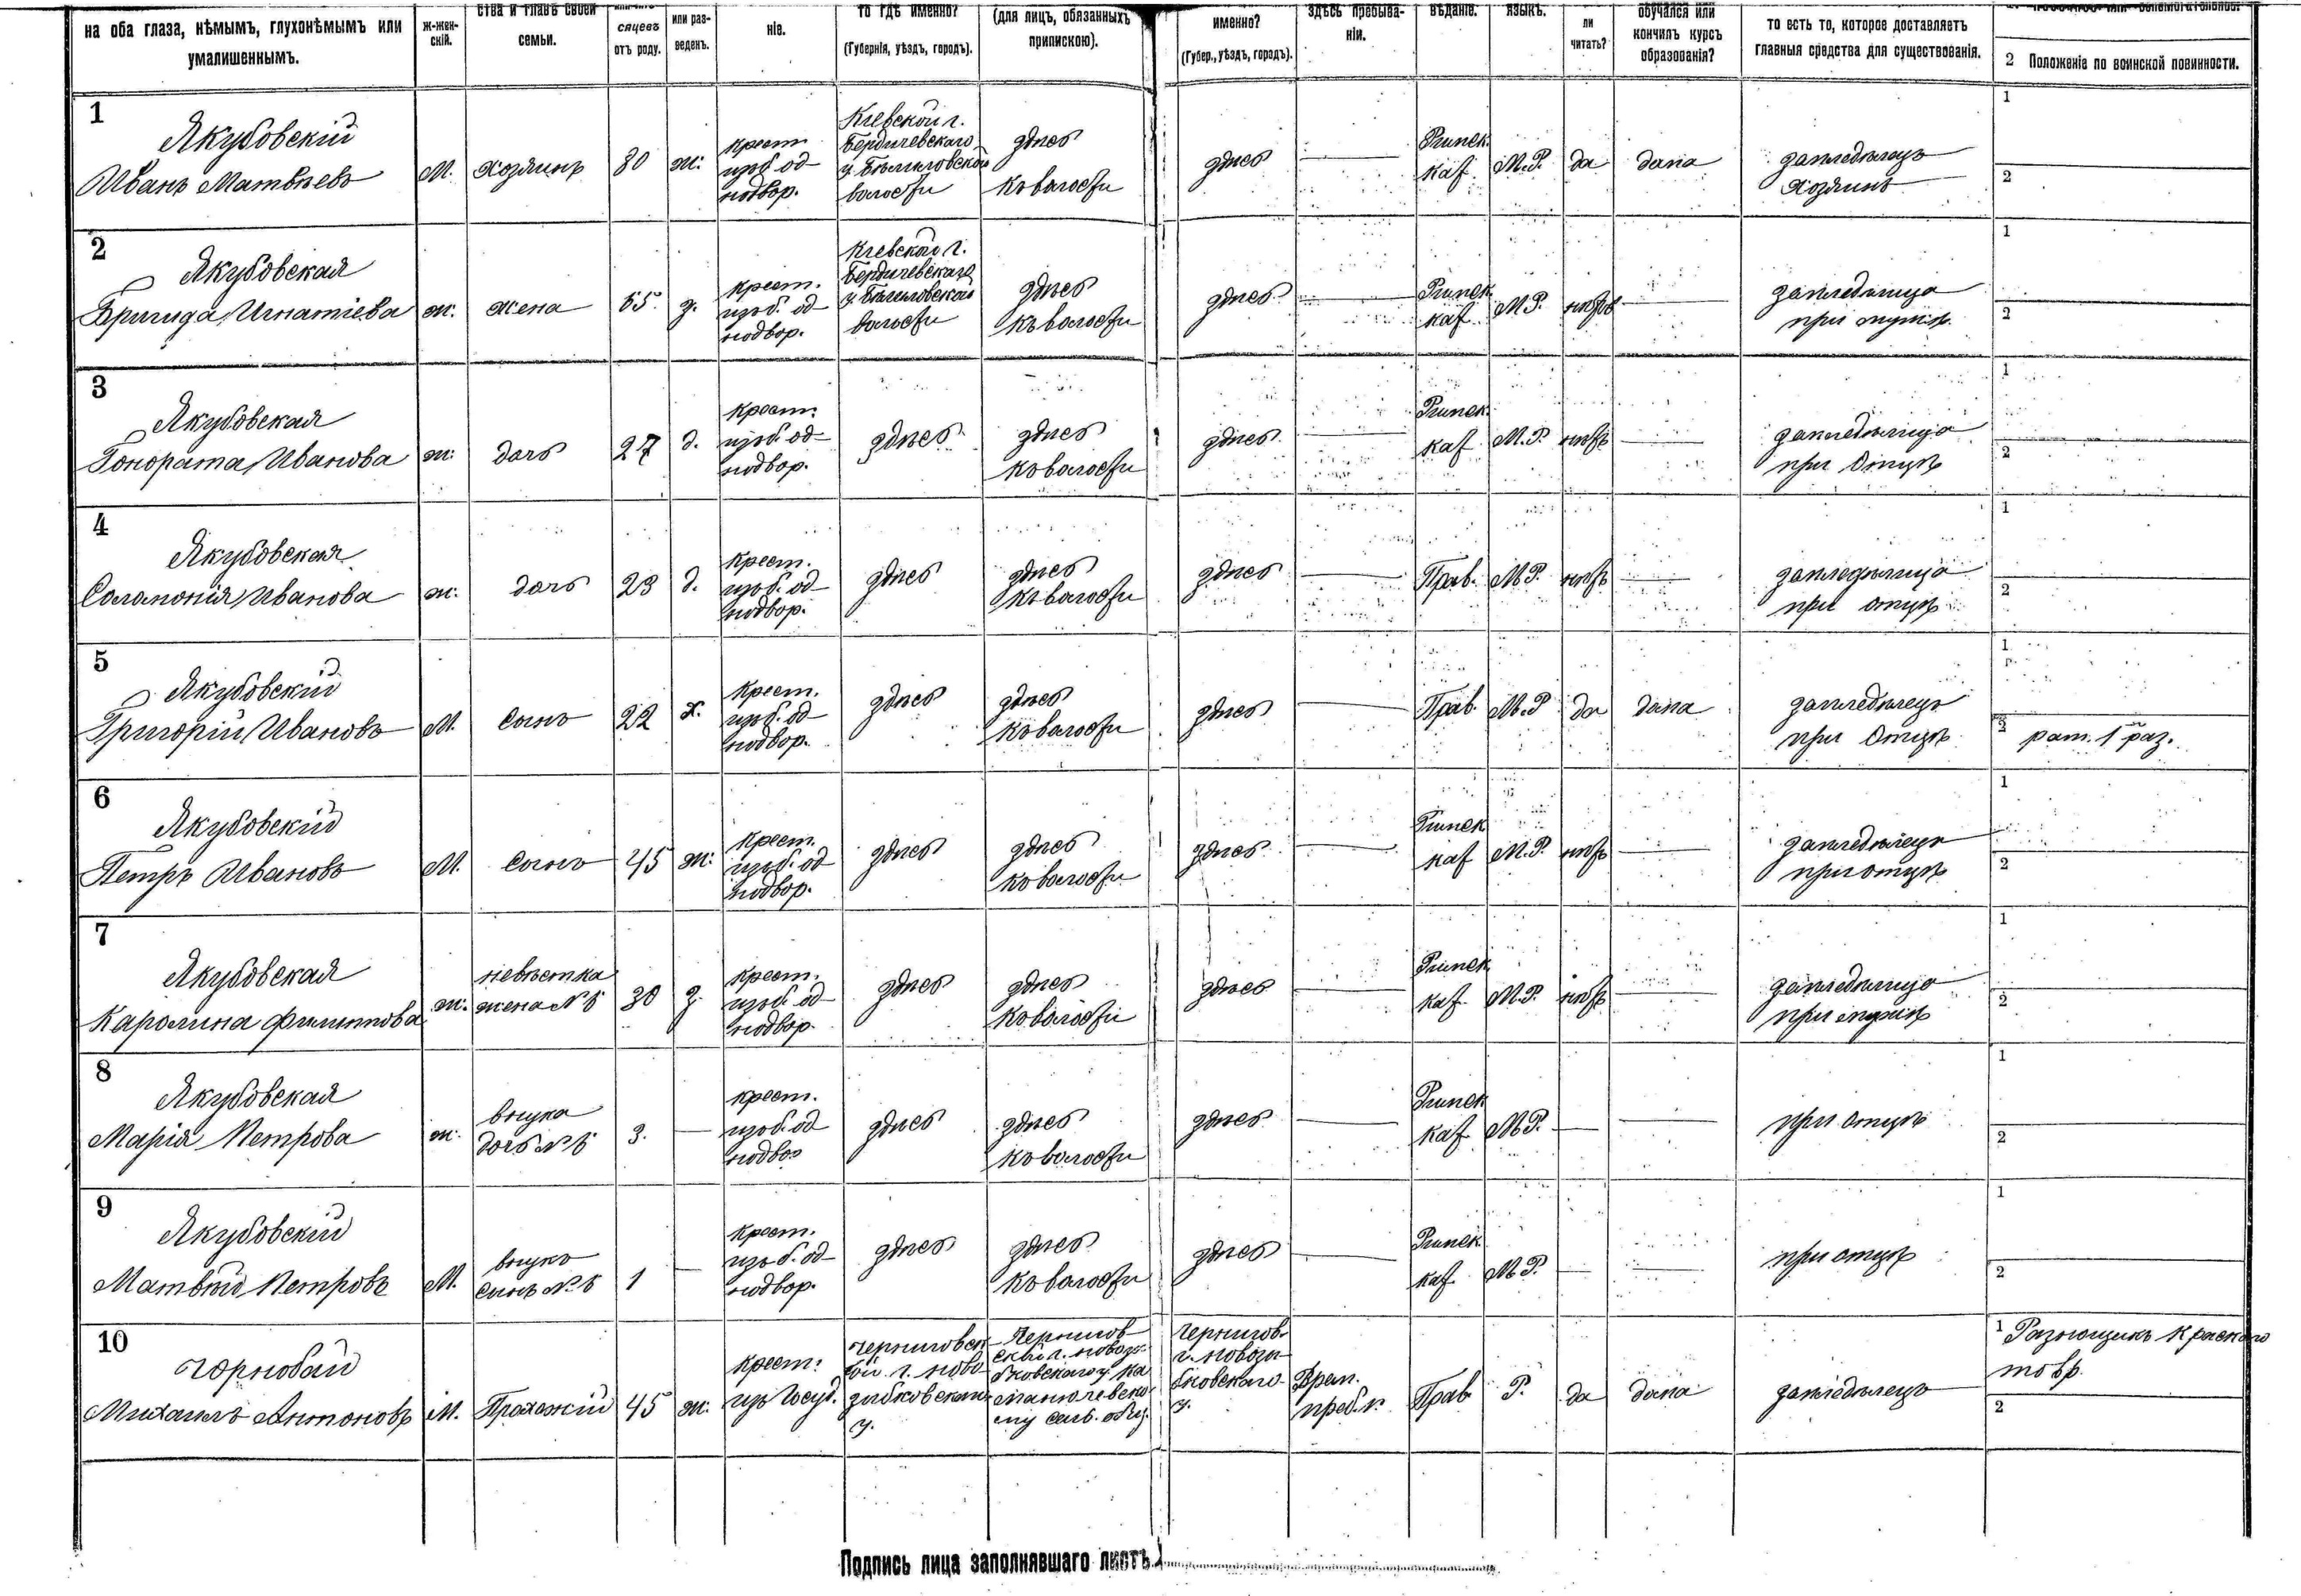 на оба глаза, нѣмымъ, глухонѣмымъ или
умалишеннымъ.
ж-жен-
скій.
ства и главѣ своей
семьи.
сяцевъ
отъ роду.
или раз-
веденъ.
ніе.
то гдѣ именно?
(Губернія, уѣздъ, городъ).
(для лицъ, обязанныхъ
припискою).
именно?
(Губер., уѣздъ, городъ).
здѣсь пребыва-
ніи.
вѣданіе.
языкъ.
ли
читать?
обучался или
кончилъ курсъ
образованія?
то есть то, которое доставляетъ
главныя средства для существованія.
2 Положеніе по воинской повинности.
1
Якубовскій
Иванъ Матвѣевъ
М.
Хозяинъ
80
ж.
крест.
изъ б. од-
нодвор.
Кіевской г.
Бердичевскаго
у. Бѣлиловской
волости
здѣсь
къ волости
здѣсь
—
Римск.
каѳ.
М.Р.
да
дома
земледѣлецъ
хозяинъ
1
2
2
Якубовская
Бригида Игнатіева
ж.
жена
65
з.
крест.
изъ б. од-
нодвор.
Кіевской г.
Бердичевскаго
у. Бѣлиловской
волости
здѣсь
къ волости
здѣсь
—
Римск.
каѳ.
М.Р.
нѣтъ
—
земледѣлица
при мужѣ.
1
2
3
Якубовская
Гонората Иванова
ж.
дочь
27
д.
крест.
изъ б. од-
нодвор.
здѣсь
здѣсь
къ волости
здѣсь
—
Римск.
каѳ
М.Р.
нѣтъ
—
земледѣлица
при отцѣ
1
2
4
Якубовская
Соломонія Иванова
ж.
дочь
23
д.
крест.
изъ б. од-
нодвор.
здѣсь
здѣсь
къ волости
здѣсь
—
Прав.
М.Р.
нѣтъ
—
земледѣлица
при отцѣ
1
2
5
Якубовскій
Григорій Ивановъ
М.
Сынъ
22
х.
крест.
изъ б. од-
нодвор.
здѣсь
здѣсь
къ волости
здѣсь
—
Прав.
М.Р
да
дома
земледѣлецъ
при отцѣ
1
2 рат. 1 раз.
6
Якубовскій
Петръ Ивановъ
М.
Сынъ
45
ж.
крест.
изъ б. од
нодвор.
здѣсь
здѣсь
къ волости
здѣсь
—
Римск
каѳ
М.Р.
нѣтъ
—
земледѣлецъ
при отцѣ
1
2
7
Якубовская
Каролина Филиппова
ж.
невѣстка
жена № 6
30
з.
крест.
изъ б. од-
нодвор.
здѣсь
здѣсь
къ волости
здѣсь
—
Римск
каѳ.
М.Р.
нѣтъ
—
земледѣлица
при мужѣ
1
2
8
Якубовская
Марія Петрова
ж.
внука
дочь № 6
3.
—
крест.
изъ б. од
нодвор
здѣсь
здѣсь
къ волости
здѣсь
—
Римск
каѳ
М.Р.
—
—
при отцѣ
1
2
9
Якубовскій
Матвѣй Петровъ
М.
внукъ
сынъ № 6
1
—
крест.
изъ б. од-
нодвор.
здѣсь
здѣсь
къ волости
здѣсь
—
Римск
каѳ.
М.Р.
—
—
при отцѣ
1
2
10
Чорнобай
Михаилъ Антоновъ
М.
Прохожій
45
ж.
крест.
изъ госуд.
Черниговск
ой г. Ново-
зыбковскаго
у.
Чернигов-
ской г. Новозы-
бковскаго у.
сель. общ.
Чернигов.
г. Новозы-
бковскаго
у.
Врем.
преб.
Прав
Р.
да
дома
земледѣлецъ
1 Разнощикъ краснаго
товр.
2
Подпись лица заполнявшаго листъ